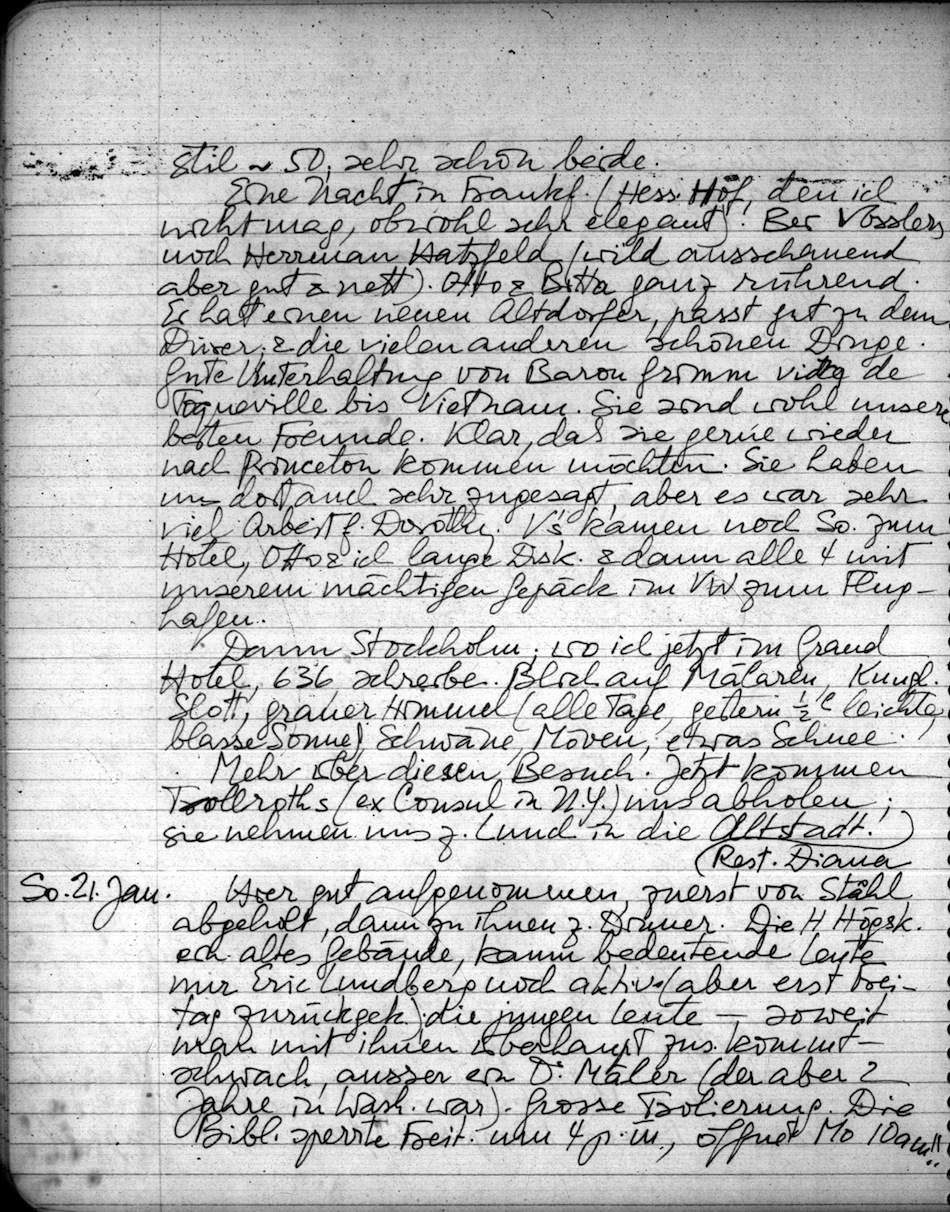 stil ~ 50, sehr schön beide.
Eine Nacht in Frankf. (Hess. Hof, den ich
nicht mag, obwohl sehr elegant). Bei Vosslers
noch Herrman Hatzfeld (wild ausschauend
aber gut & nett). Otto & Bitta ganz rührend.
Er hat einen neuen Altdorfer, passt gut zu dem
Dürer, & die vielen anderen schönen Dinge.
Gute Unterhaltung von Baron Grimm de
Toqueville bis Vietnam. Sie sind wohl unsere
besten Freunde. Klar, das sie gerne wieder
nach Princeton kommen möchten. Sie haben
uns dort auch sehr zugesagt, aber es war sehr
viel Arbeit f. Dorothy. V's kamen noch So. zum
Hotel, Otto & ich lange Disk. & dann alle 4 mit
unserem mächtigen Gepäck im VW zum Flug-
hafen.
Dann Stockholm, wo ich jetzt im Grand
Hotel, 636 schreibe. Blick auf Mälaren, Kungl.
Slott, grauer Himmel (alle Tage, gestern ½ leichte
blasse Sonne), Schwäne, Möven, etwas Schnee.
Mehr über diesen Besuch. Jetzt kommen
(ex Consul in N.Y.) uns abholen,
sie nehmen uns z. Lunch in die Altstadt.
(Rest. Diana)
So. 21. Jan. Hier gut aufgenommen, zuerst von Ståhl
abgeholt, dann zu ihnen z. Dinner. Die H Högsk.
ein altes Gebäude, kaum bedeutende Leute
nur Eric Lundberg noch aktiv (aber erst Frei-
tag zurückgek.) die jungen Leute — soweit
man mit ihnen überhaupt zus. kommt —
schwach, ausser ein D. Mäler (der aber 2
Jahre in Wash. war). Grosse Isolierung. Die
Bibl. sperrte Freit. um 4 p.m., öffnet Mo 10am!!